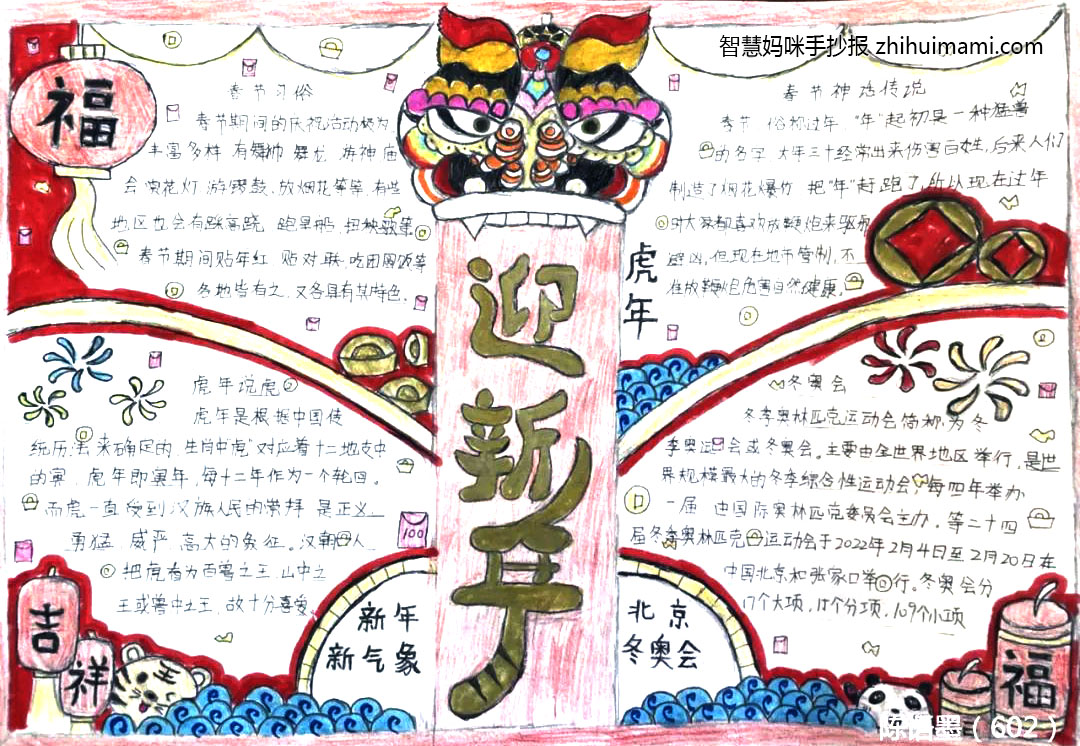 智慧妈咪手抄报 zhihuimami.com
福
春节习俗
春节期间的庆祝活动极为
丰富多样 有舞狮 舞龙 游神 庙
会 赏花灯 游锣鼓、放烟花等等，有些
地区也会有踩高跷 跑旱船 扭秧歌等
春节期间贴年红 贴对联、吃团圆饭等
各地皆有之，又各具有其特色。
春节神话传说
春节 俗称过年，"年"起初是一种猛兽
的名字 大年三十经常出来伤害百姓，后来人们
制造了烟花爆竹 把"年"赶跑了，所以现在过年
时大家都喜欢放鞭炮来
避凶，但现在 管制，不
准放鞭炮危害自然健康。
虎年
迎新年
虎年说虎
虎年是根据中国传
统历法来确定的，生肖中"虎"对应着十二地支中
的寅 虎年即寅年，每十二年作为一个轮回。
而虎一直受到汉族人民的崇拜 是正义、
勇猛 威严、高大的象征。汉朝 人
把虎看为百兽之王、山中之
王或兽中之王，故十分喜爱
100
冬奥会
冬季奥林匹克运动会简称为冬
季奥运会或冬奥会。主要由全世界地区举行，是世
界规模最大的冬季综合性运动会，每四年举办
一届 由国际奥林匹克委员会主办。等二十四
届冬奥林匹克运动会于2022年2月4日至2月20日在
中国北京和张家口举行。冬奥会分
17个大项，15个分项，109个小项
吉
祥
新年
新气象
北京
冬奥会
福
陈 墨（602）